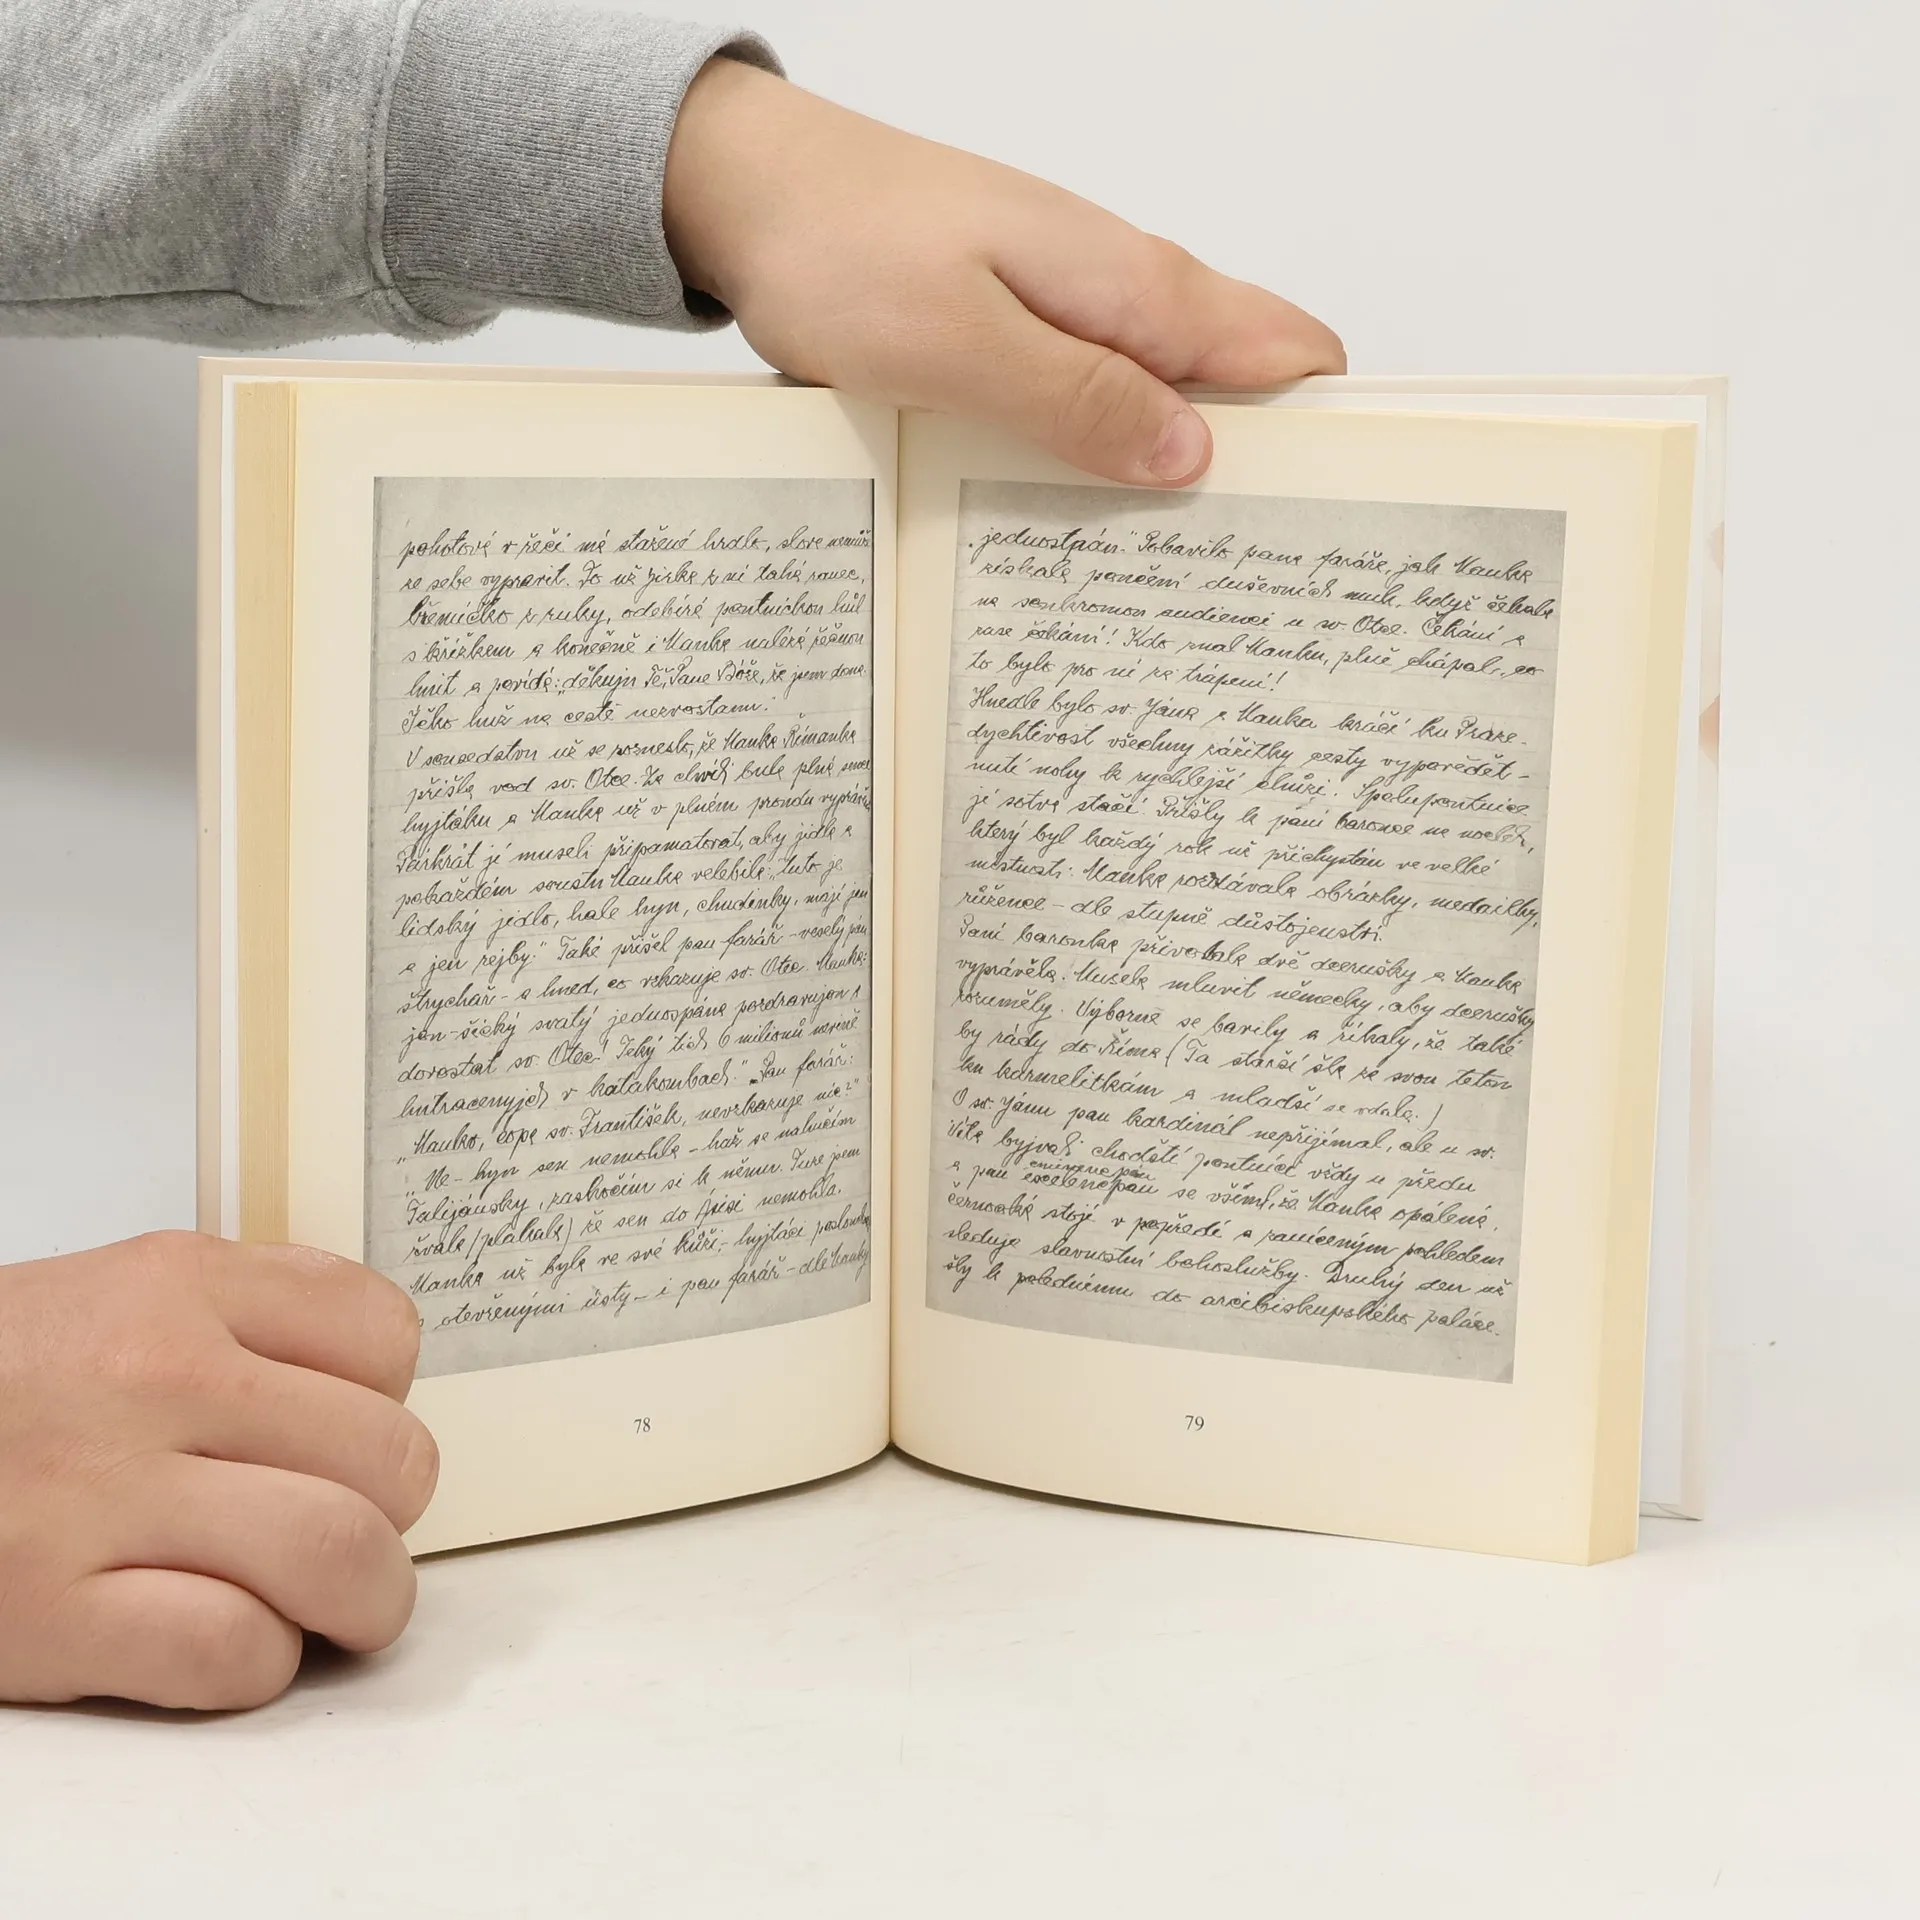 pohotová v řeči má stažené hrdlo, slova nemůže
ze sebe vypravit. To už Jirka z ní tahá ranec,
břemíčko z ruky, odebírá poutnickou hůl
s křížkem a konečně i Hanka nalézá řečnou
a povídá: „děkuju Tě, Pane Bóže, že jsem doma.
Těho huž na cestě nezvostanu."
V sousedstvu už se rozneslo, že Hanka Římanka
přišla vod sv. Otce. Za chvíli bula plná
hyjtáku a Hanka už v plném proudu vypráví.
Párkrát jí museli připamatovat, aby jídla a
pokaždém soustu Hanka velebila: „tuto je
lidský jídlo, hale hyn, chudinky, mají jen
a jen rejby." Také přišel pan farář – veselý pán
štrychař – a hned, co vzkazuje sv. Otec. Hanka:
jan – šický svatý jednospána pozdravujou a
dorostat sv. Otec! Teký tich 6 milionů
hutracenyjch v katakombach." „Pan farář:
„Hanko, copa sv. František, nevzkazuje nic?"
„Ne – hyn sem nemohla – haž se nahučím
Talijánsky, zaskočím si k němu. Tuze jsem
řvala (plakala) že sem do Asisi nemohla.
Hanka už byla ve své kůži, – hyjtáci
otevřenými ústy – i pan farář – dle Hanky
78
„jednostpán." Pobavilo pana faráře, jak Hanka
získala ponětní duševních muk, když čekala
na soukromou audienci u sv. Otce. Čekání a
zase čekání! Kdo znal Hanku, plně chápal, co
to bylo pro ni za trápení!
Hnedle bylo sv. Jána a Hanka kráčí ku Praze –
dychtivost všechny zážitky cesty vypovědět –
nutí nohy k rychlejší chůzi. Spolupoutnice
jí sotva stačí. Přišly k paní baronce na nocleh,
který byl každý rok už přichystán ve velké
místnosti. Hanka rozdávala obrázky, medailky,
růžence – dle stupně důstojenství.
Paní baronka přivolala dvě dcerušky a Hanka
vyprávěla. Musela mluvit německy, aby dcerušky
rozuměly. Výborně se bavily a říkaly, že také
by rády do Říma (Ta starší šla za svou tetou
ku karmelitkám a mladší se vdala.)
O sv. Jánu pan kardinál nepřijímal, ale u sv.
Víta byjvali chodští poutníci vždy u předu
eminenc pán
a pan excelencpán se všiml, že Hanka opálená,
černooká stojí v popředí a zaníceným pohledem
sleduje slavnostní bohoslužby. Druhý den už
šly k polednímu do arcibiskupského paláce.
79